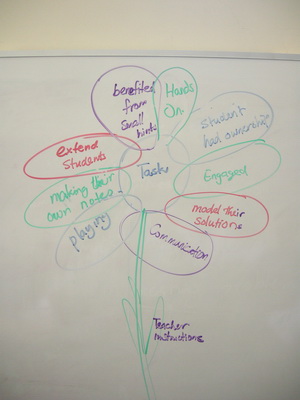 benefited
from
small
hints
Hands
On
student
had ownership
extend
students
Task
Engaged
making their
own notes
playing
model their
solutions
Communication
Teacher
instructions